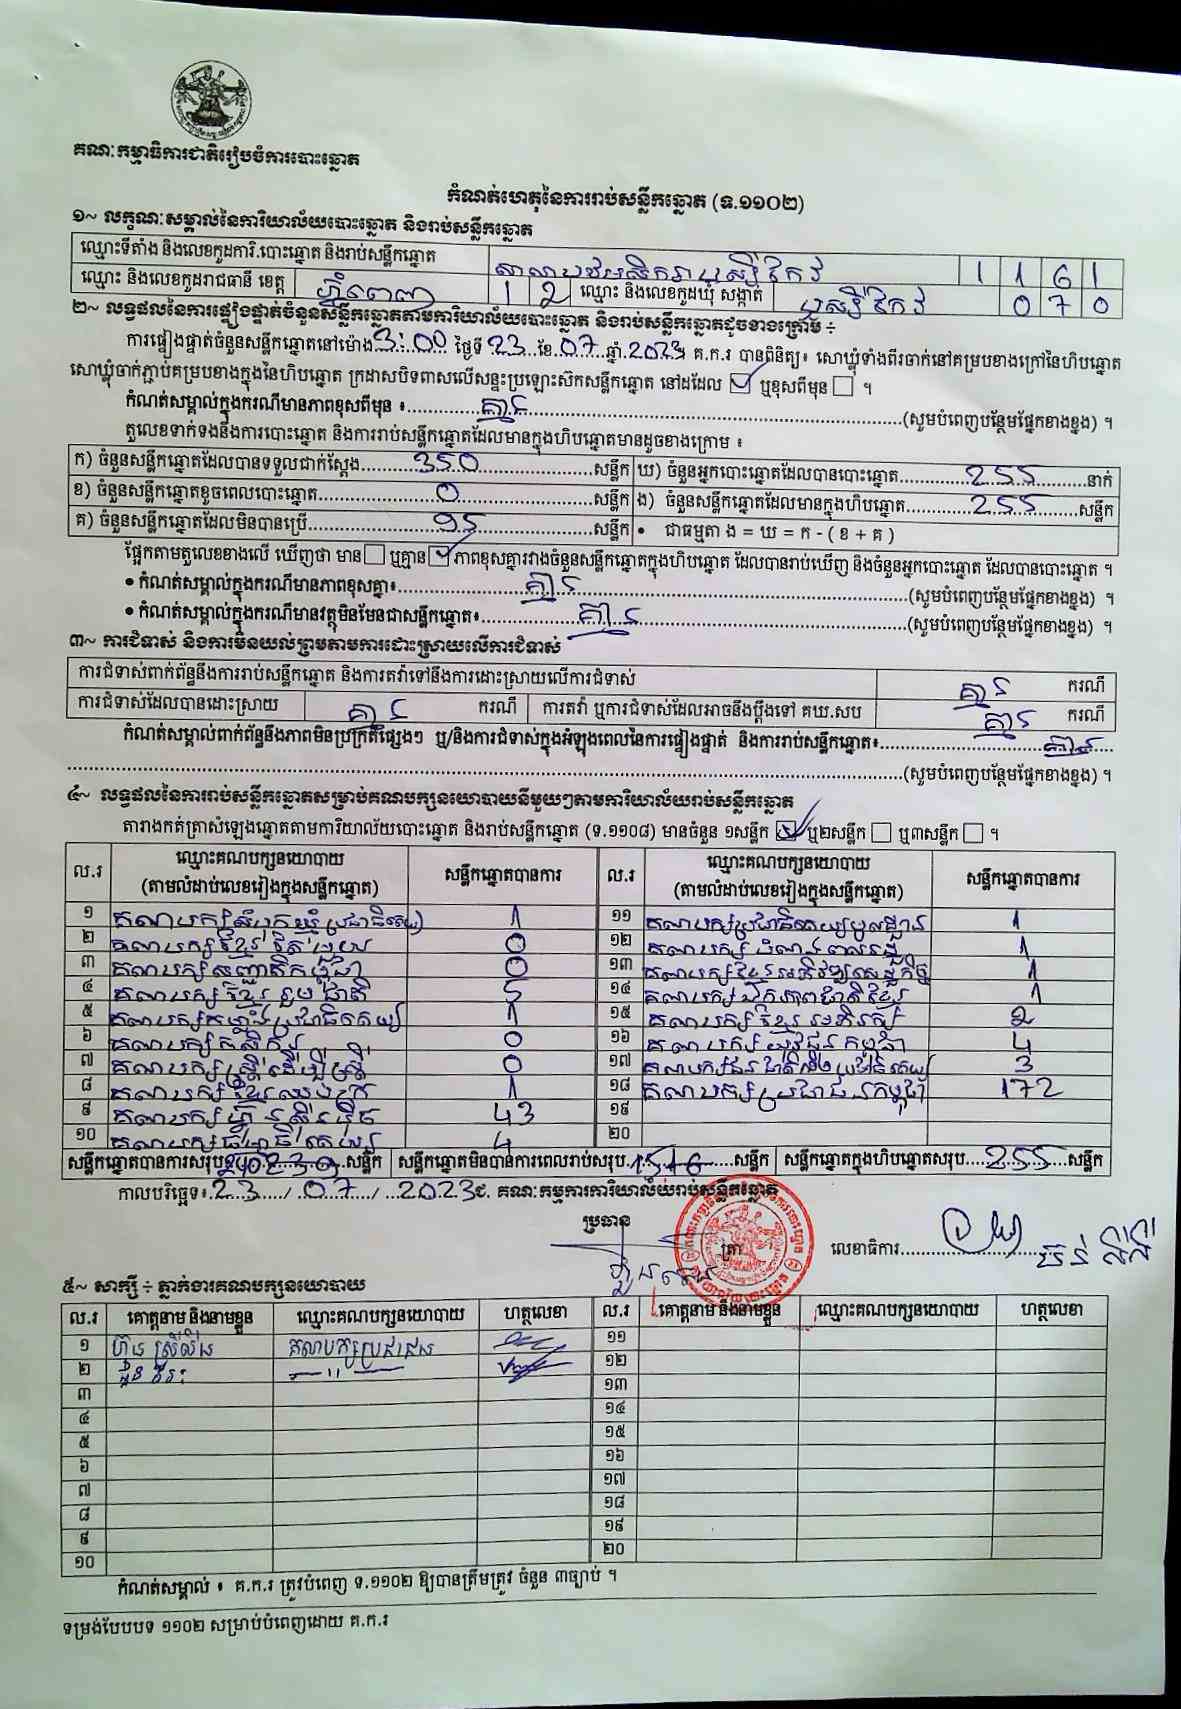 គណៈកម្មាធិការជាតិរៀបចំការបោះឆ្នោត
កំណត់ហេតុនៃការរាប់សន្លឹកឆ្នោត (ទ.១១០២)
១~ លក្ខណៈសម្គាល់នៃការិយាល័យបោះឆ្នោត និងរាប់សន្លឹកឆ្នោត
ឈ្មោះទីតាំង និងលេខកូដការិ.បោះឆ្នោត និងរាប់សន្លឹកឆ្នោត 1 1 6 1
ឈ្មោះ និងលេខកូដរាជធានី ខេត្ត ភ្នំពេញ 1 2 ឈ្មោះ និងលេខកូដឃុំ សង្កាត់ ឫស្សីកែវ 0 7 0
២~ លទ្ធផលនៃការផ្ទៀងផ្ទាត់ចំនួនសន្លឹកឆ្នោតតាមការិយាល័យបោះឆ្នោត និងរាប់សន្លឹកឆ្នោតដូចខាងក្រោម ÷
ការផ្ទៀងផ្ទាត់ចំនួនសន្លឹកឆ្នោតនៅម៉ោង 3:00 ថ្ងៃទី 23 ខែ 07 ឆ្នាំ 2023 គ.ក.រ បានពិនិត្យ៖ សោឃ្លុំទាំងពីរចាក់នៅគម្របខាងក្រៅនៃហិបឆ្នោត
សោឃ្លុំចាក់ភ្ជាប់គម្របខាងក្នុងនៃហិបឆ្នោត ក្រដាសបិទពាសលើសន្ទះប្រឡោះស៊កសន្លឹកឆ្នោត នៅដដែល ☑ ឬខុសពីមុន ☐ ។
កំណត់សម្គាល់ក្នុងករណីមានភាពខុសពីមុន ៖ គ្មាន (សូមបំពេញបន្ថែមផ្នែកខាងខ្នង) ។
តួលេខទាក់ទងនឹងការបោះឆ្នោត និងការរាប់សន្លឹកឆ្នោតដែលមានក្នុងហិបឆ្នោតមានដូចខាងក្រោម ៖
ក) ចំនួនសន្លឹកឆ្នោតដែលបានទទួលជាក់ស្តែង 350 សន្លឹក ឃ) ចំនួនអ្នកបោះឆ្នោតដែលបានបោះឆ្នោត 255 នាក់
ខ) ចំនួនសន្លឹកឆ្នោតខូចពេលបោះឆ្នោត 0 សន្លឹក ង) ចំនួនសន្លឹកឆ្នោតដែលមានក្នុងហិបឆ្នោត 255 សន្លឹក
គ) ចំនួនសន្លឹកឆ្នោតដែលមិនបានប្រើ 95 សន្លឹក • ជាធម្មតា ង = ឃ = ក - ( ខ + គ )
ផ្អែកតាមតួលេខខាងលើ ឃើញថា មាន ☐ ឬគ្មាន ☑ ភាពខុសគ្នារវាងចំនួនសន្លឹកឆ្នោតក្នុងហិបឆ្នោត ដែលបានរាប់ឃើញ និងចំនួនអ្នកបោះឆ្នោត ដែលបានបោះឆ្នោត ។
• កំណត់សម្គាល់ក្នុងករណីមានភាពខុសគ្នា៖ គ្មាន (សូមបំពេញបន្ថែមផ្នែកខាងខ្នង) ។
• កំណត់សម្គាល់ក្នុងករណីមានវត្ថុមិនមែនជាសន្លឹកឆ្នោត៖ គ្មាន (សូមបំពេញបន្ថែមផ្នែកខាងខ្នង) ។
៣~ ការជំទាស់ និងការមិនយល់ព្រមតាមការដោះស្រាយលើការជំទាស់
ការជំទាស់ពាក់ព័ន្ធនឹងការរាប់សន្លឹកឆ្នោត និងការតវ៉ាទៅនឹងការដោះស្រាយលើការជំទាស់ គ្មាន ករណី
ការជំទាស់ដែលបានដោះស្រាយ គ្មាន ករណី ការតវ៉ា ឬការជំទាស់ដែលអាចនឹងប្តឹងទៅ គឃ.សប គ្មាន ករណី
កំណត់សម្គាល់ពាក់ព័ន្ធនឹងភាពមិនប្រក្រតីផ្សេងៗ ឬ/និងការជំទាស់ក្នុងអំឡុងពេលនៃការផ្ទៀងផ្ទាត់ និងការរាប់សន្លឹកឆ្នោត៖ គ្មាន
(សូមបំពេញបន្ថែមផ្នែកខាងខ្នង) ។
៤~ លទ្ធផលនៃការរាប់សន្លឹកឆ្នោតសម្រាប់គណបក្សនយោបាយនីមួយៗតាមការិយាល័យរាប់សន្លឹកឆ្នោត
តារាងកត់ត្រាសំឡេងឆ្នោតតាមការិយាល័យបោះឆ្នោត និងរាប់សន្លឹកឆ្នោត (ទ.១១០៨) មានចំនួន ១សន្លឹក ☑ ឬ២សន្លឹក ☐ ឬ៣សន្លឹក ☐ ។
ល.រ ឈ្មោះគណបក្សនយោបាយ (តាមលំដាប់លេខរៀងក្នុងសន្លឹកឆ្នោត) សន្លឹកឆ្នោតបានការ ល.រ ឈ្មោះគណបក្សនយោបាយ (តាមលំដាប់លេខរៀងក្នុងសន្លឹកឆ្នោត) សន្លឹកឆ្នោតបានការ
១ គណបក្សសំបុកឃ្មុំប្រជាធិតេយ្យ 1 ១១ គណបក្សប្រជាធិតេយ្យមូលដ្ឋាន 1
២ គណបក្សខ្មែរតែមួយ 0 ១២ គណបក្ស 1
៣ គណបក្សសញ្ជាតិកម្ពុជា 0 ១៣ គណបក្សខ្មែរអភិវឌ្ឍសេដ្ឋកិច្ច 1
៤ គណបក្សខ្មែររួបរួមជាតិ 5 ១៤ គណបក្សឯកភាពជាតិខ្មែរ 1
៥ គណបក្សកម្លាំងប្រជាធិតេយ្យ 1 ១៥ គណបក្សខ្មែរអភិរក្ស 2
៦ គណបក្សកសិករ 0 ១៦ គណបក្សយុវជនកម្ពុជា 4
៧ គណបក្សស្ត្រីដើម្បីស្ត្រី 0 ១៧ គណបក្ស 3
៨ គណបក្សខ្មែរឈប់ក្រ 1 ១៨ គណបក្សប្រជាជនកម្ពុជា 172
៩ គណបក្សហ៊្វុនស៊ិនប៉ិច 43 ១៩
១០ គណបក្សធម្មាធិបតេយ្យ 4 ២០
សន្លឹកឆ្នោតបានការសរុប 239 សន្លឹក សន្លឹកឆ្នោតមិនបានការពេលរាប់សរុប 16 សន្លឹក សន្លឹកឆ្នោតក្នុងហិបឆ្នោតសរុប 255 សន្លឹក
កាលបរិច្ឆេទ៖ 23 / 07 / 2023 គណៈកម្មការការិយាល័យរាប់សន្លឹកឆ្នោត
ប្រធាន
ត្រា
លេខាធិការ
៥~ សាក្សី ÷ ភ្នាក់ងារគណបក្សនយោបាយ
ល.រ គោត្តនាម និងនាមខ្លួន ឈ្មោះគណបក្សនយោបាយ ហត្ថលេខា ល.រ គោត្តនាម និងនាមខ្លួន ឈ្មោះគណបក្សនយោបាយ ហត្ថលេខា
១ គណបក្សប្រជាជន ១១
២ ១២
៣ ១៣
៤ ១៤
៥ ១៥
៦ ១៦
៧ ១៧
៨ ១៨
៩ ១៩
១០ ២០
កំណត់សម្គាល់ ៖ គ.ក.រ ត្រូវបំពេញ ទ.១១០២ ឱ្យបានត្រឹមត្រូវ ចំនួន ៣ច្បាប់ ។
ទម្រង់បែបបទ ១១០២ សម្រាប់បំពេញដោយ គ.ក.រ